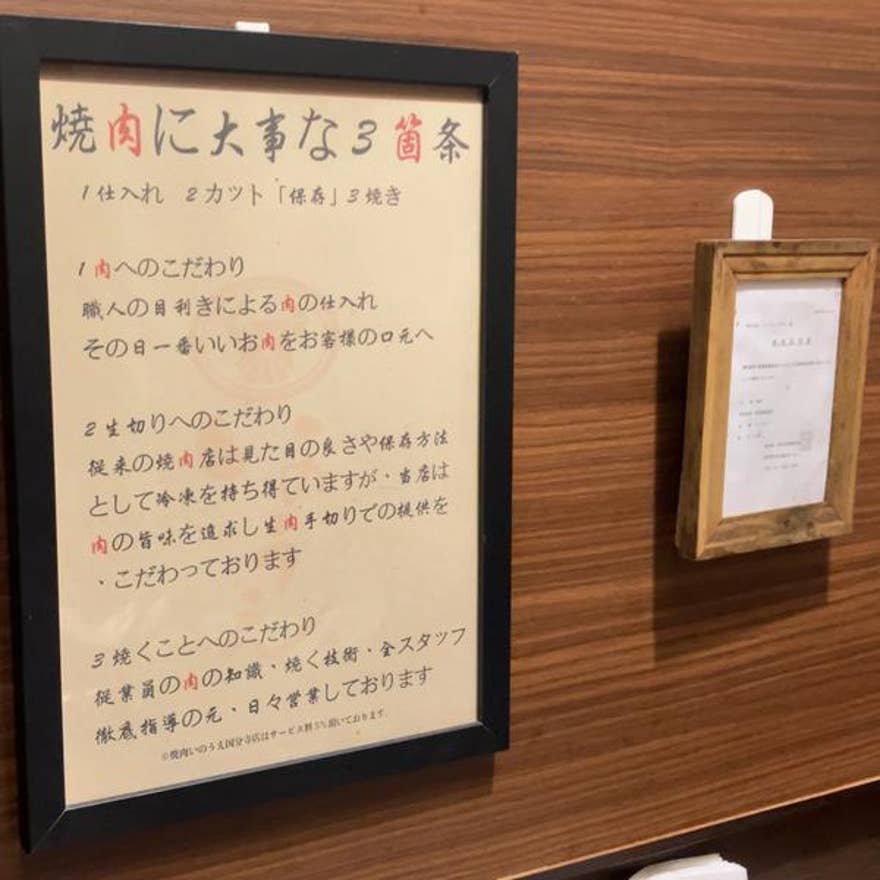 焼肉に大事な3箇条
1仕入れ 2カット「保存」3焼き
1肉へのこだわり
職人の目利きによる肉の仕入れ
その日一番いいお肉をお客様の口元へ
2生切りへのこだわり
従来の焼肉店は見た目の良さや保存方法
として冷凍を持ち得ていますが・当店は
肉の旨味を追求し生肉手切りでの提供を
・こだわっております
3焼くことへのこだわり
従業員の肉の知識・焼く技術・全スタッフ
徹底指導の元・日々営業しております
※焼肉いのうえ国分寺店はサービス料5%頂いております